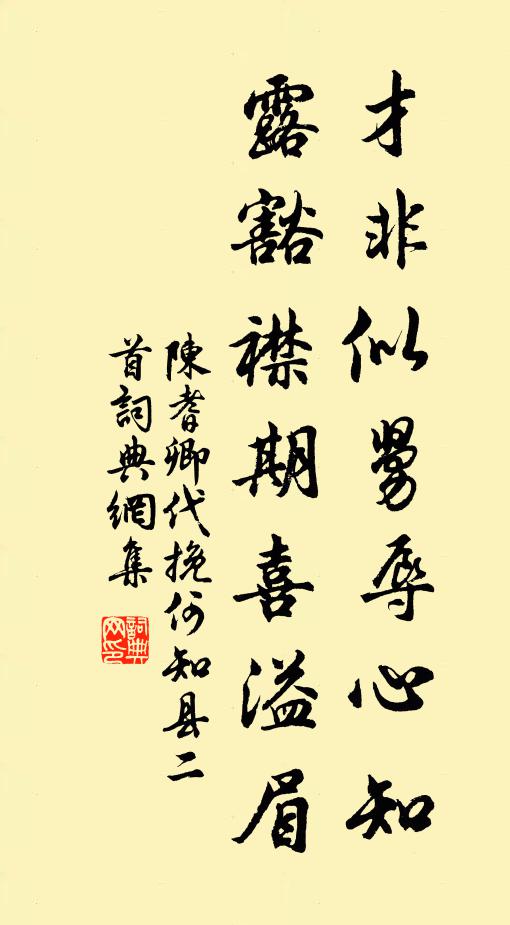 才非似舅辱心知
露豁襟期喜溢眉
陳耆卿代挽何知县二
首詞典網集
詞典
网印